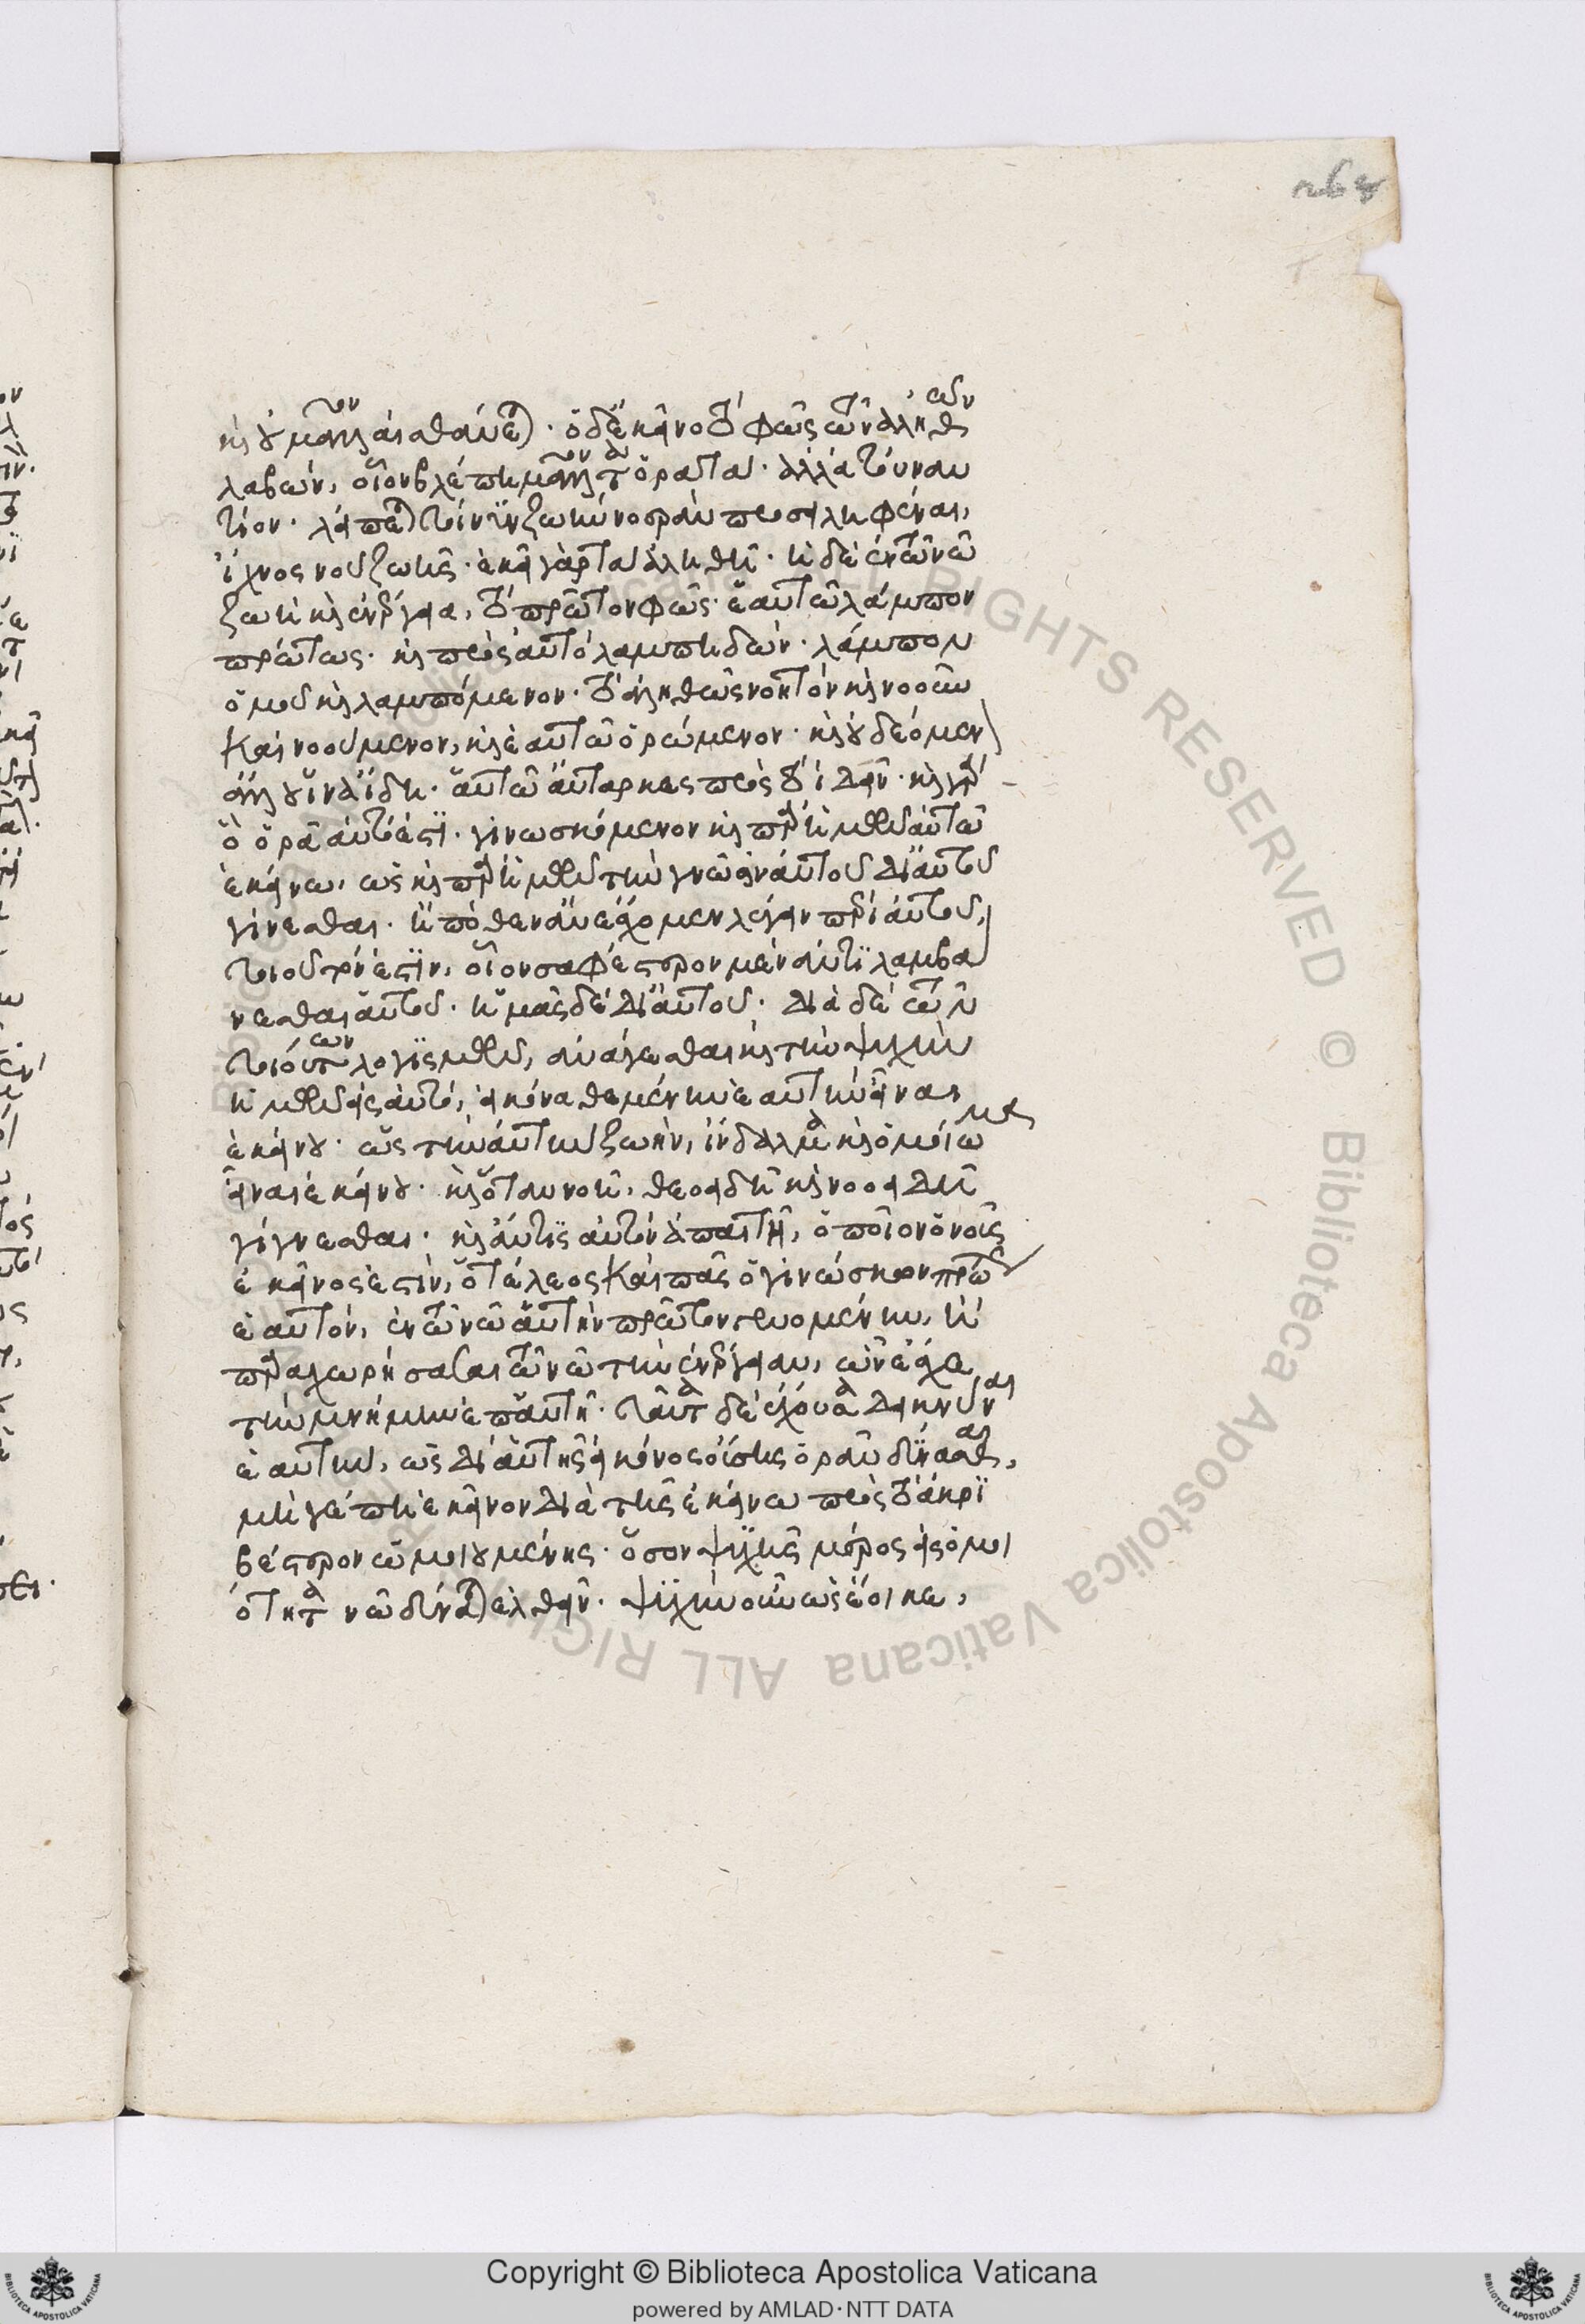 καὶ οὐ μᾶλλον αἰσθάνεται. ὁ δὲ ἐκεῖνο τὸ φῶς τῶν ἀληθῶν
λαβὼν, οἷον βλέπει μᾶλλον τὰ ὁρατά. ἀλλὰ τοὐναν
τίον. λείπεται τοίνυν ζωὴν νοερὰν προσειληφέναι,
ἴχνος νοῦ ζωῆς. ἐκεῖ γὰρ τὰ ἀληθῆ. ἡ δὲ ἐν τῷ νῷ
ζωὴ καὶ ἐνέργεια, τὸ πρῶτον φῶς ἑαυτῷ λάμπον
πρώτως. καὶ πρὸς αὐτὸ λαμπηδών. λάμπον
ὁμοῦ καὶ λαμπόμενον. τὸ ἀληθῶς νοητὸν καὶ νοοῦν
καὶ νοούμενον, καὶ ἑαυτῷ ὁρώμενον. καὶ οὐ δεόμενον
ἄλλου ἵνα ἴδῃ. αὑτῷ αὔταρκες πρὸς τὸ ἰδεῖν. καὶ γὰρ
ὃ ὁρᾷ αὐτό ἐστι. γινωσκόμενον καὶ παρ' ἡμῶν αὐτῷ
ἐκείνῳ, ὡς καὶ παρ' ἡμῶν τὴν γνῶσιν αὐτοῦ δι' αὐτοῦ
γίνεσθαι. ἢ πόθεν ἂν ἔσχομεν λέγειν περὶ αὐτοῦ,
τοιοῦτόν ἐστιν, οἷον σαφέστερον μὲν ἀντιλαμβά
νεσθαι αὑτοῦ. ἡμᾶς δὲ δι' αὐτοῦ. διὰ δὲ τῶν
τοιούτων λογισμῶν, ἀνάγεσθαι καὶ τὴν ψυχὴν
ἡμῶν εἰς αὐτό, εἰκόνα θεμένην ἑαυτὴν εἶναι
ἐκείνου. ὡς τὴν αὐτῆς ζωὴν, ἴνδαλμα καὶ ὁμοίωμα
εἶναι ἐκείνου. καὶ ὅταν νοῇ, θεοειδῆ καὶ νοοειδῆ
γίγνεσθαι. καὶ ἐάν τις αὐτὴν ἀπαιτῇ, ὁποῖον ὁ νοῦς
ἐκεῖνός ἐστιν, ὁ τέλεος καὶ πᾶς ὁ γινώσκων πρώτως
ἑαυτόν, ἐν τῷ νῷ αὐτὴν πρῶτον γενομένην, ἢ
παραχωρήσασαν τῷ νῷ τὴν ἐνέργειαν, ὧν ἔσχε
τὴν μνήμην ἐπ' αὐτῇ. ταῦτα δὲ ἔχουσα δεικνύναι
ἑαυτήν, ὡς δι' αὐτῆς εἰκόνος οὔσης ὁρᾶν δύνασθαι,
μή γέ πη ἐκεῖνον διὰ τῆς ἐκείνῳ πρὸς τὸ ἀκρι
βέστερον ὡμοιωμένης. ὅσον ψυχῆς μέρος εἰς ὁμοι
ότητα νῷ δύναται ἐλθεῖν. ψυχὴν οὖν ὡς ἔοικε,
Copyright © Biblioteca Apostolica Vaticana
powered by AMLAD·NTT DATA